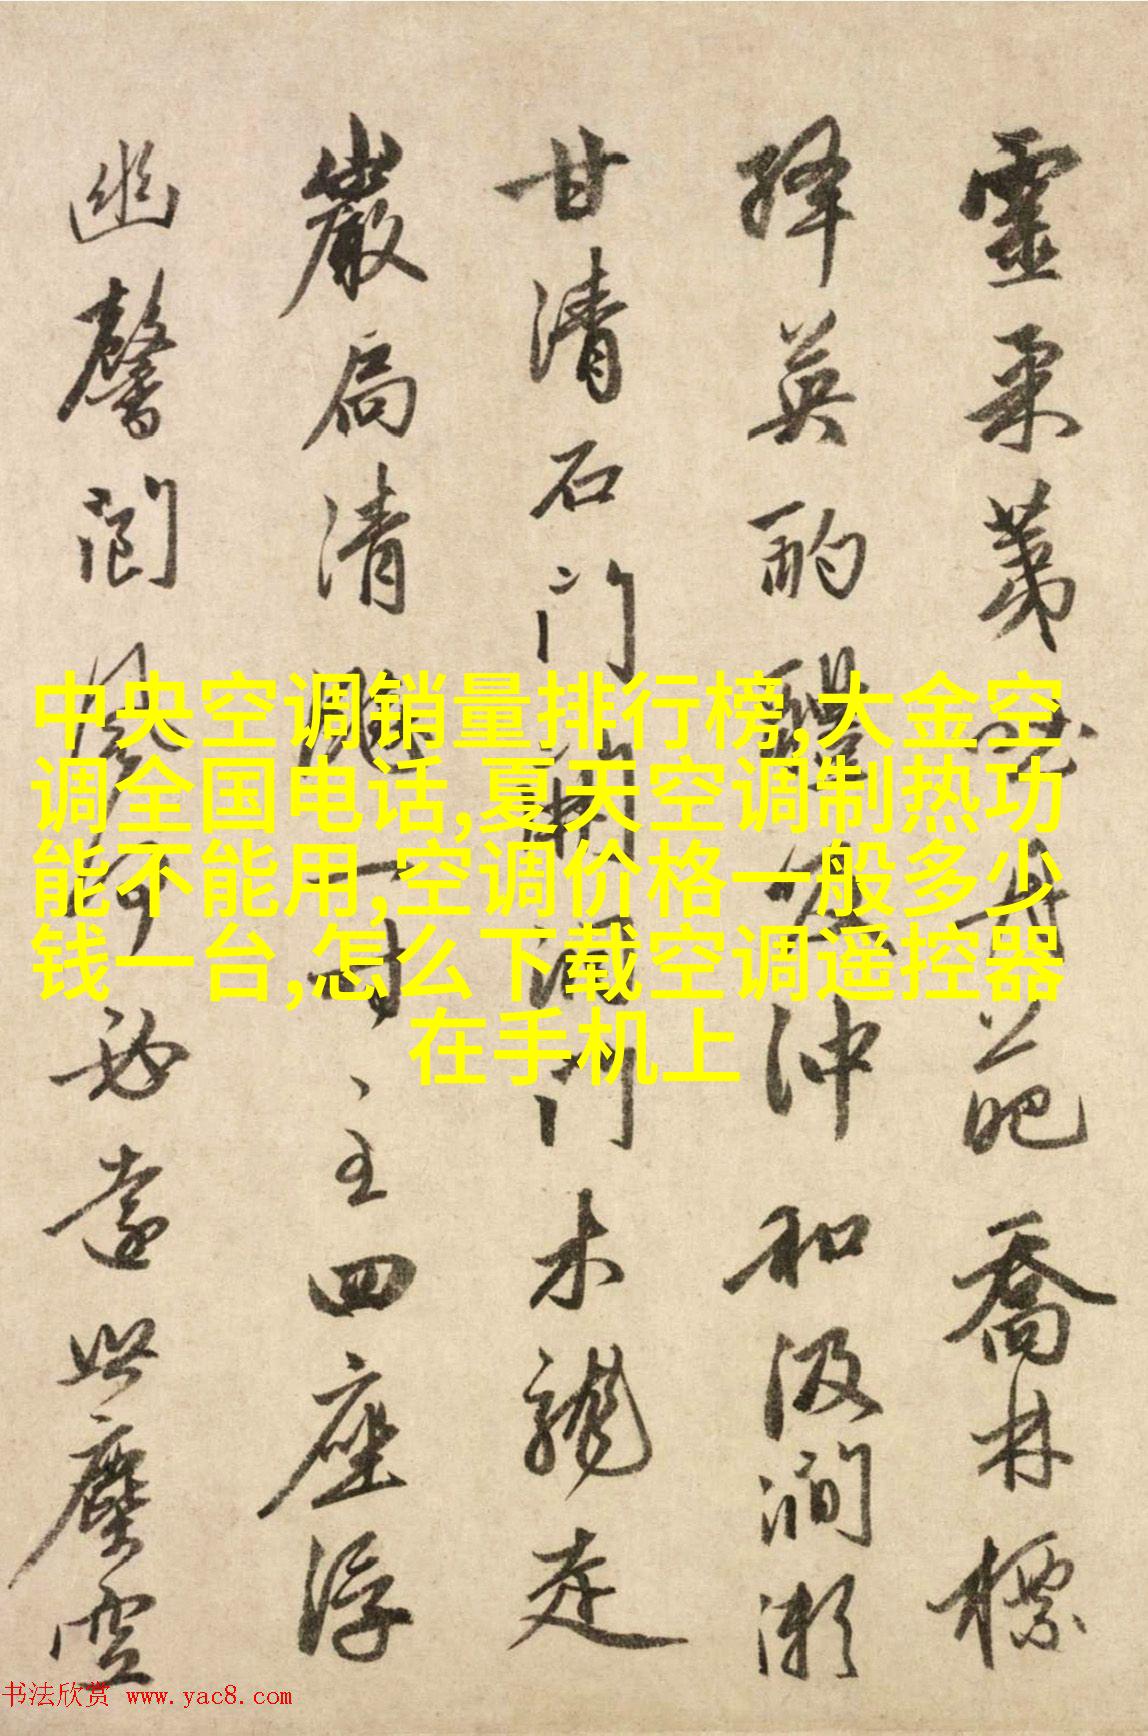 靈采丹葩喬林標
絳英酌醴沖和汲澗瀨
甘清石門門木龍走
巖扃清一對主四座浮
幽馨閬風何必遠塵空
中央空调销量排行榜,大金空
调全国电话,夏天空调制热功
能不能用,空调价格一般多少
钱一台,怎么下载空调遥控器
在手机上
书法欣赏 www.yac8.com